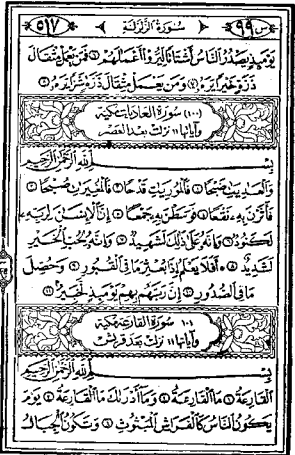 س ٩٩ سُورَةُ الزَّلْزَلَةِ ٥١٧
يَوْمَئِذٍ يَصْدُرُ النَّاسُ أَشْتَاتًا لِيُرَوْا أَعْمَالَهُمْ ۝٦ فَمَن يَعْمَلْ مِثْقَالَ
ذَرَّةٍ خَيْرًا يَرَهُ ۝٧ وَمَن يَعْمَلْ مِثْقَالَ ذَرَّةٍ شَرًّا يَرَهُ ۝٨
(١٠٠) سورة العاديات مكية
وآياتها ١١ نزلت بعد العصر
بِسْمِ اللَّهِ الرَّحْمَٰنِ الرَّحِيمِ
وَالْعَادِيَاتِ ضَبْحًا ۝١ فَالْمُورِيَاتِ قَدْحًا ۝٢ فَالْمُغِيرَاتِ صُبْحًا ۝٣
فَأَثَرْنَ بِهِ نَقْعًا ۝٤ فَوَسَطْنَ بِهِ جَمْعًا ۝٥ إِنَّ الْإِنسَانَ لِرَبِّهِ
لَكَنُودٌ ۝٦ وَإِنَّهُ عَلَىٰ ذَٰلِكَ لَشَهِيدٌ ۝٧ وَإِنَّهُ لِحُبِّ الْخَيْرِ
لَشَدِيدٌ ۝٨ أَفَلَا يَعْلَمُ إِذَا بُعْثِرَ مَا فِي الْقُبُورِ ۝٩ وَحُصِّلَ
مَا فِي الصُّدُورِ ۝١٠ إِنَّ رَبَّهُم بِهِمْ يَوْمَئِذٍ لَخَبِيرٌ ۝١١
(١٠١) سورة القارعة مكية
وآياتها ١١ نزلت بعد قريش
بِسْمِ اللَّهِ الرَّحْمَٰنِ الرَّحِيمِ
الْقَارِعَةُ ۝١ مَا الْقَارِعَةُ ۝٢ وَمَا أَدْرَاكَ مَا الْقَارِعَةُ ۝٣ يَوْمَ
يَكُونُ النَّاسُ كَالْفَرَاشِ الْمَبْثُوثِ ۝٤ وَتَكُونُ الْجِبَالُ